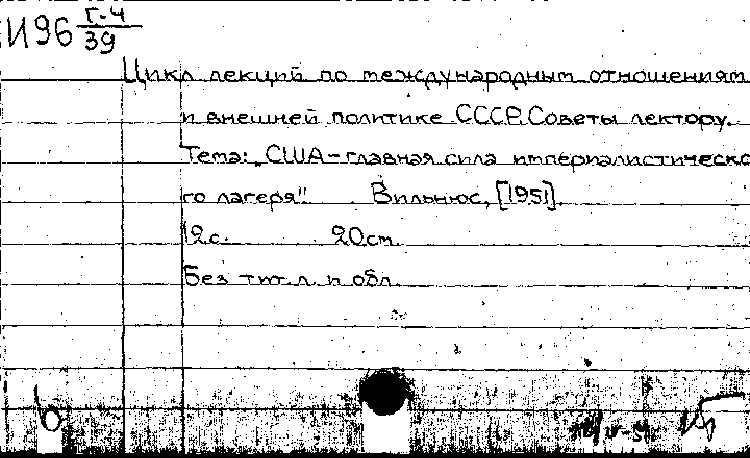 И96 Г-4
39
Цикл лекций по международным отношениям
и внешней политике СССР. Советы лектору.
Тема: „США-главная сила империалистическо
го лагеря". Вильнюс, [1951].
12 с. 20 см.
Без тит. л. и обл.